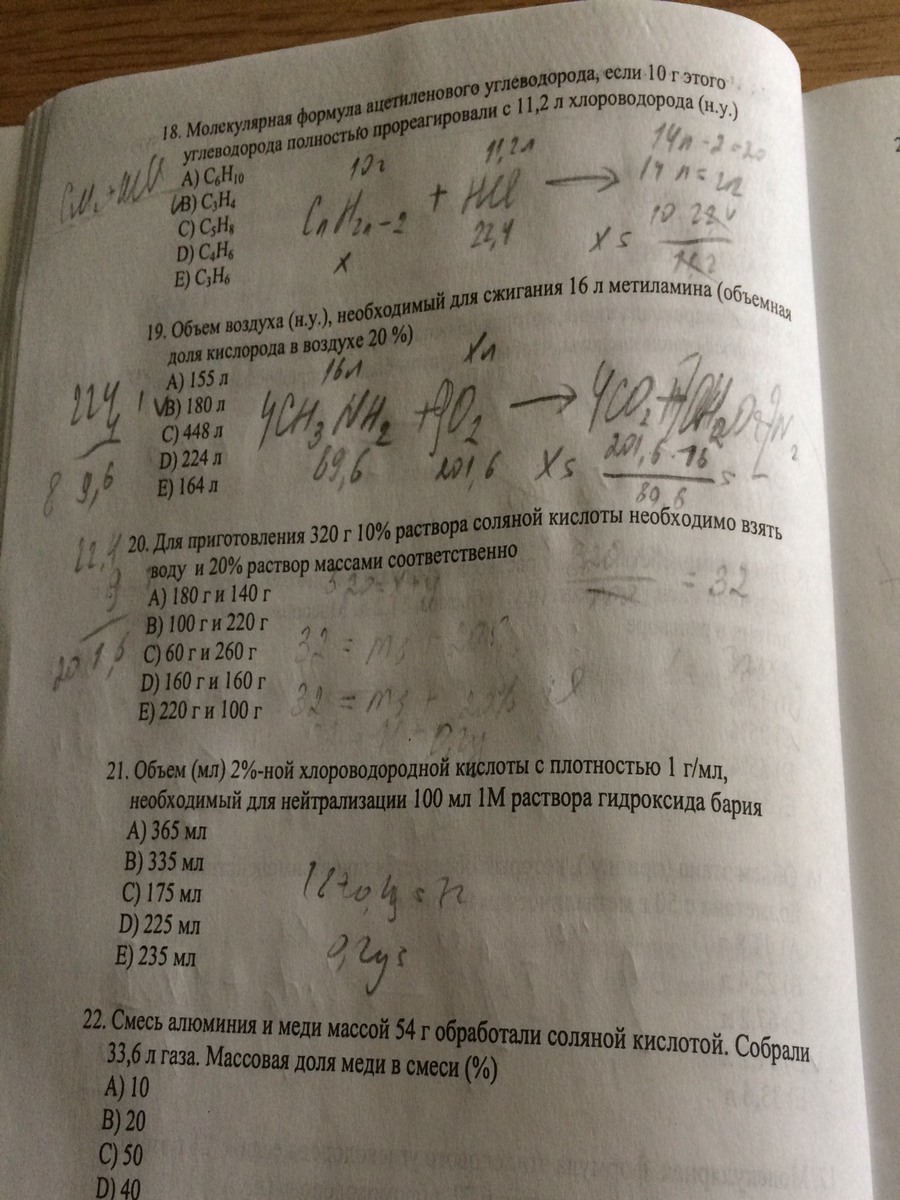 18. Молекулярная формула ацетиленового углеводорода, если 10 г этого
углеводорода полностью прореагировали с 11,2 л хлороводорода (н.у.)
A) C₆H₁₀
B) C₃H₄
C) C₅H₈
D) C₄H₆
E) C₃H₆
10 г 11,2 л 14n-2=20
CnH2n-2 + HCl →
x 22,4 x =
19. Объем воздуха (н.у.), необходимый для сжигания 16 л метиламина (объемная
доля кислорода в воздухе 20 %)
A) 155 л
B) 180 л
C) 448 л
D) 224 л
E) 164 л
16 л x л
4CH3NH2 + 9O2 → 4CO2
89,6 201,6 x = 201,6·16
89,6
22,4
4
89,6
20. Для приготовления 320 г 10% раствора соляной кислоты необходимо взять
воду и 20% раствор массами соответственно
A) 180 г и 140 г
B) 100 г и 220 г
C) 60 г и 260 г
D) 160 г и 160 г
E) 220 г и 100 г
22,4
9
201,6
= 32
320=x+y
21. Объем (мл) 2%-ной хлороводородной кислоты с плотностью 1 г/мл,
необходимый для нейтрализации 100 мл 1М раствора гидроксида бария
A) 365 мл
B) 335 мл
C) 175 мл
D) 225 мл
E) 235 мл
22. Смесь алюминия и меди массой 54 г обработали соляной кислотой. Собрали
33,6 л газа. Массовая доля меди в смеси (%)
A) 10
B) 20
C) 50
D) 40